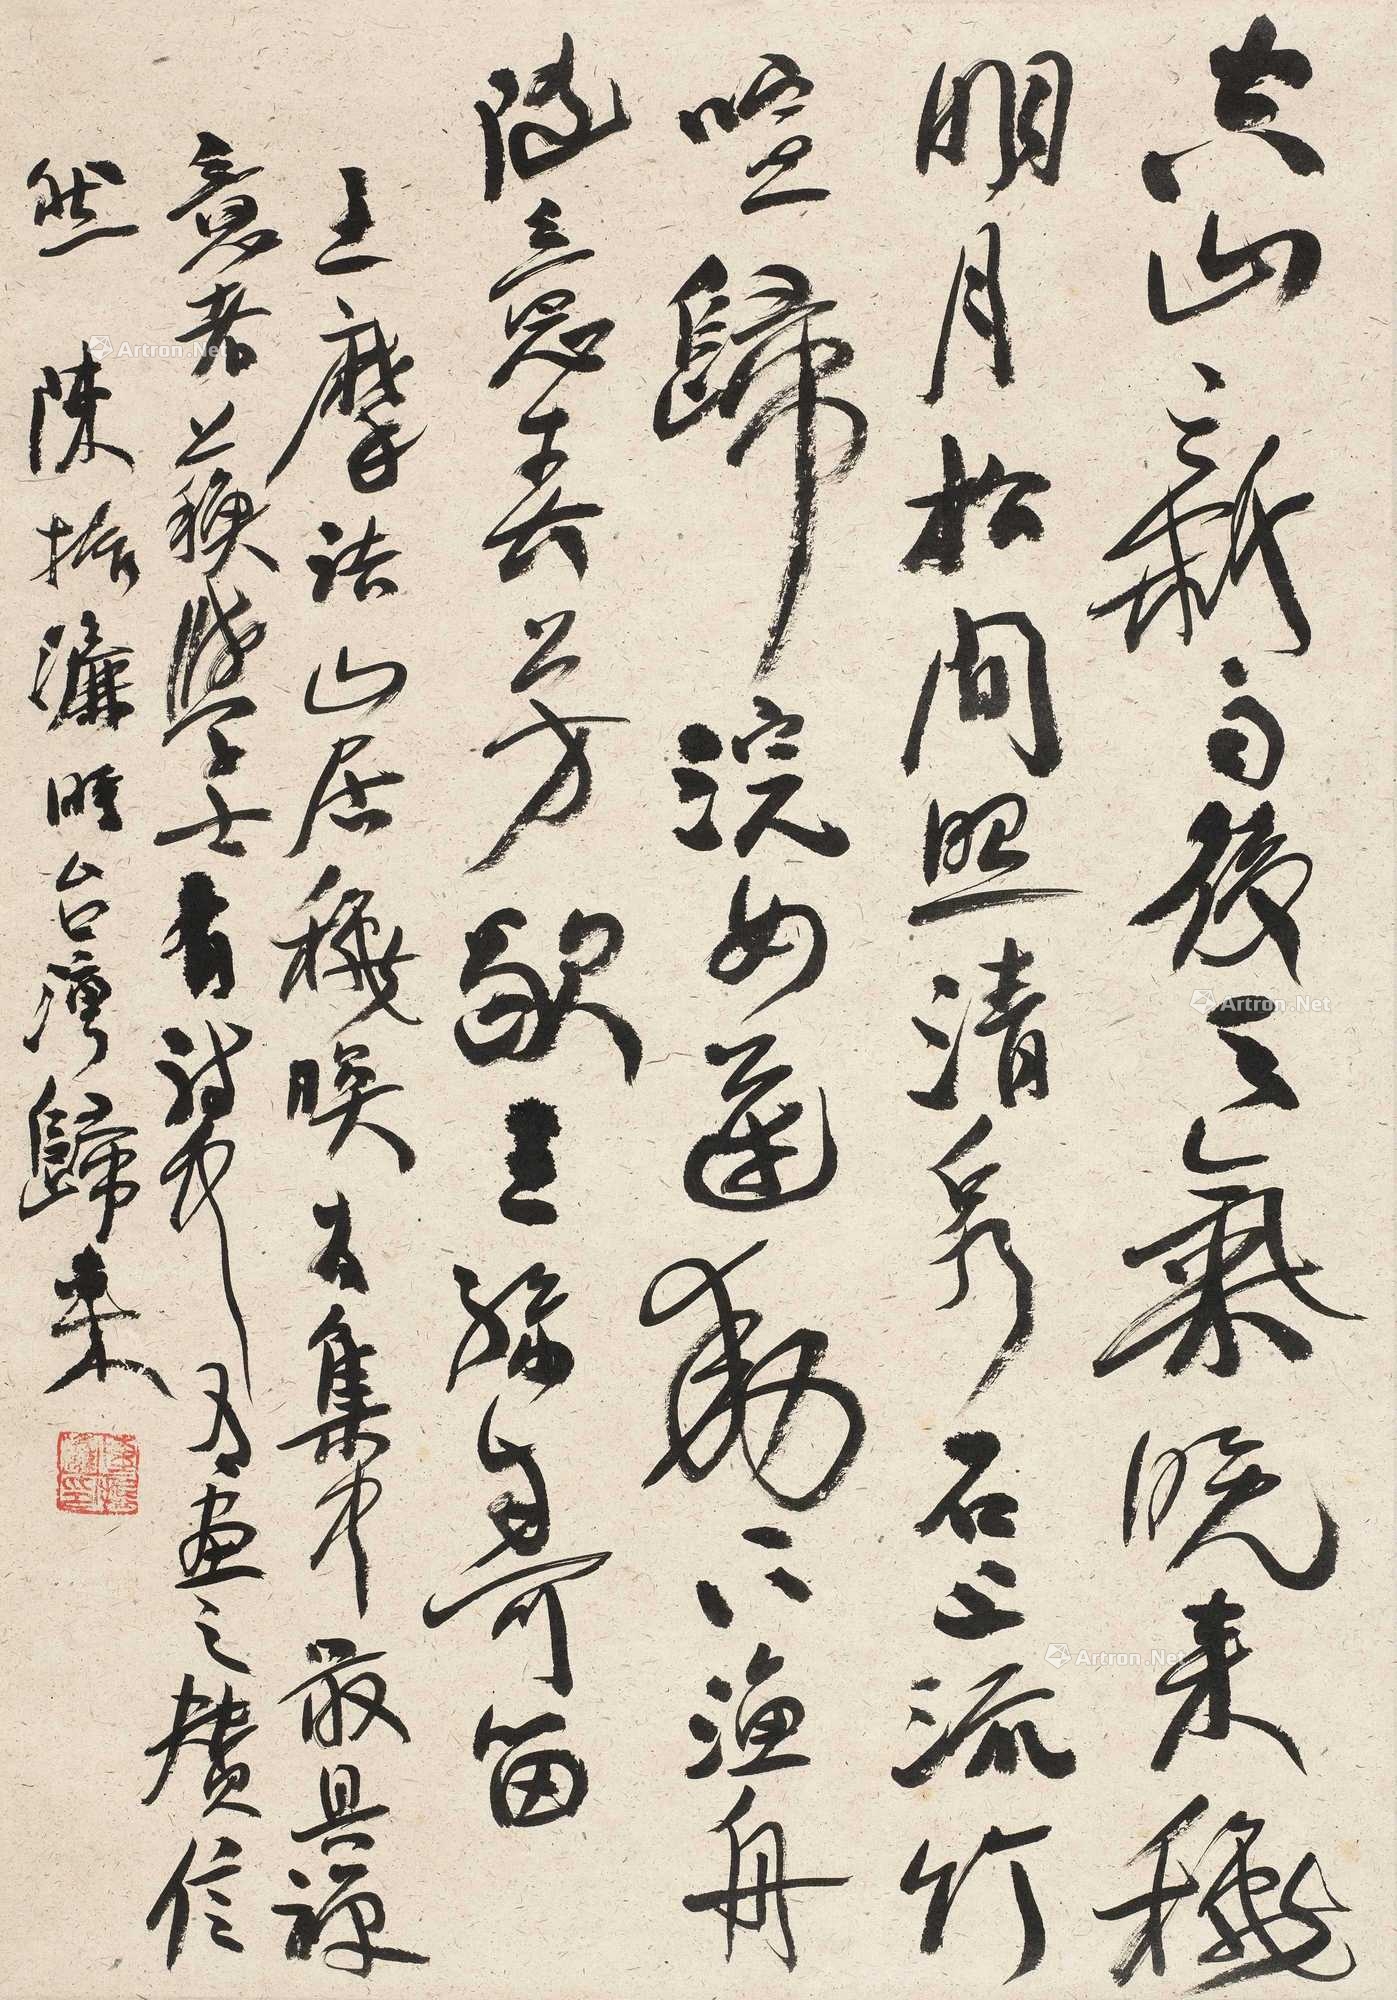 空山新雨後天氣晚來穐
明月松間照清泉石上流竹
喧歸浣女蓮動下漁舟
随意春芳歇王孫自可留
王摩詰山居穐暝集中最具禪
意者蘇學士有詩中有畫之贊信
然 陳振濂時台灣歸来
Artron.Net
Artron.Net
Artron.Net